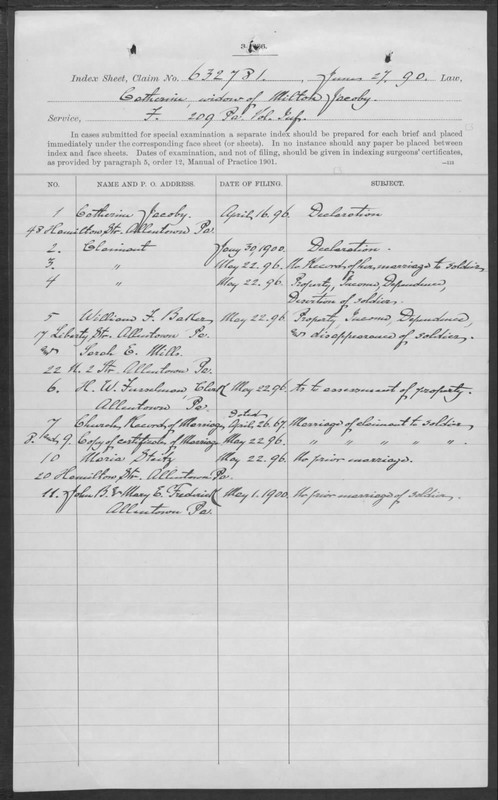 Index Sheet, Claim No. 632781. June 27. 90. Law.
Catherine, widow of Milton Jacoby.
Service, F. 209 Pa. Vol. Inf.
In cases submitted for special examination a separate index should be prepared for each brief and placed
immediately under the corresponding face sheet (or sheets). In no instance should any paper be placed between
index and face sheets. Dates of examination, and not of filing, should be given in indexing surgeons' certificates,
as provided by paragraph 5, order 12, Manual of Practice 1901.
NO. NAME AND P. O. ADDRESS. DATE OF FILING. SUBJECT.
1 Catherine Jacoby. April 16. 96. Declaration
48 Hamilton Str. Allentown Pa.
2. Claimant Jany 30, 1900. Declaration.
3. " May 22. 96. No Record of her marriage to soldier.
4 " May 22. 96. Property, Income, Dependence,
Desertion of soldier.
5 William F. May 22. 96. Property, Income, Dependence,
7 Liberty Str. Allentown Pa. & disappearance of soldier.
& Sarah C. Mills.
22 N. 2 Str. Allentown Pa.
6. H. W. Clerk May 22 96. As to assessment of property.
Allentown Pa.
Dated
7 Church Record of Marriage April 26. 67. Marriage of claimant to soldier
8. & 9. Copy of certificate of Marriage May 22. 96. " " " " " .
10 Maria May 22. 96. No prior marriage.
20 Hamilton Str. Allentown Pa.
11. John B. & Mary C. Frederick May 1. 1900. No prior marriage of soldier.
Allentown Pa.